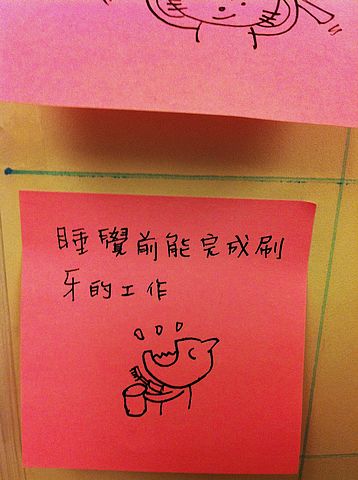 睡覺前能完成刷
牙的工作